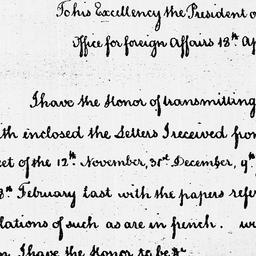 To his Excellency the President o
Office for foreign Affairs 18th Ap
I have the Honor of transmitting
th enclosed the Letters I received fro
et of the 12th November, 31st December, 9th
8th February last with the papers refe
lations of such as are in french. w
I have the Honor to be &c